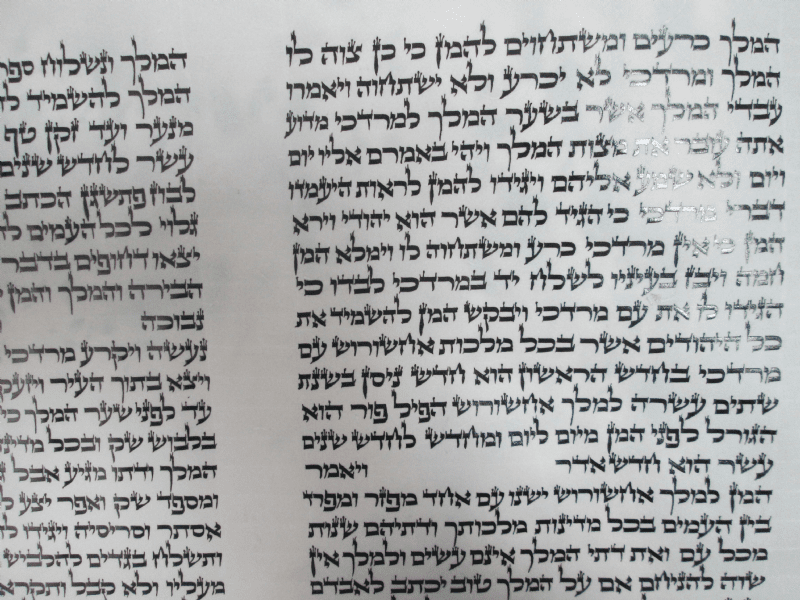 המלך כרעים ומשתחוים להמן כי כן צוה לו
המלך ומרדכי לא יכרע ולא ישתחוה ויאמרו
עבדי המלך אשר בשער המלך למרדכי מדוע
אתה עובר את מצות המלך ויהי באמרם אליו יום
ויום ולא שמע אליהם ויגידו להמן לראות היעמדו
דברי מרדכי כי הגיד להם אשר הוא יהודי וירא
המן כי אין מרדכי כרע ומשתחוה לו וימלא המן
חמה ויבז בעיניו לשלח יד במרדכי לבדו כי
הגידו לו את עם מרדכי ויבקש המן להשמיד את
כל היהודים אשר בכל מלכות אחשורוש עם
מרדכי בחדש הראשון הוא חדש ניסן בשנת
שתים עשרה למלך אחשורוש הפיל פור הוא
הגורל לפני המן מיום ליום ומחדש לחדש שנים
עשר הוא חדש אדר ויאמר
המן למלך אחשורוש ישנו עם אחד מפזר ומפרד
בין העמים בכל מדינות מלכותך ודתיהם שנות
מכל עם ואת דתי המלך אינם עשים ולמלך אין
שוה להניחם אם על המלך טוב יכתב לאבדם
המלך ונשלוח ספר
המלך להשמיד
מנער ועד זקן טף
עשר לחדש שנים
לבוז פתשגן הכתב
גלוי לכל העמים
יצאו דחופים בדבר
הבירה והמלך והמן
נבוכה
נעשה ויקרע מרדכי
ויצא בתוך העיר ויזעק
עד לפני שער המלך כי
בלבוש שק ובכל
המלך ודתו מגיע אבל
ומספד שק ואפר יצע
אסתר וסריסיה ויגידו
ותשלח בגדים להלביש
מעליו ולא קבל ותקרא